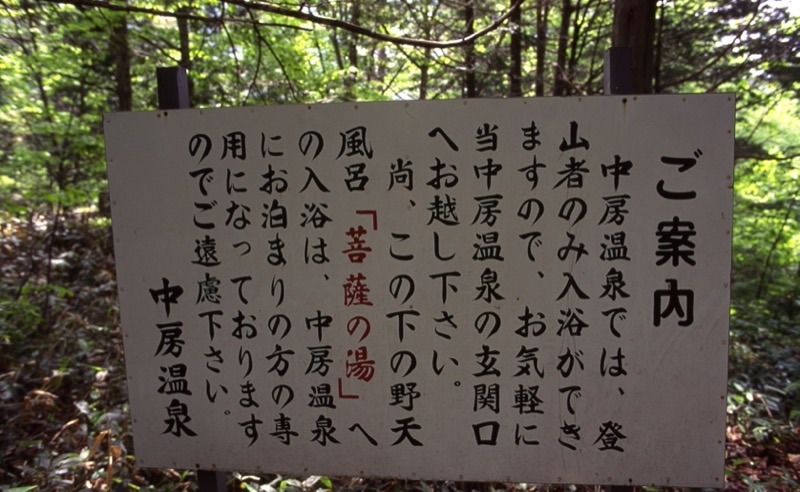 ご案内
中房温泉では、登
山者のみ入浴ができ
ますので、お気軽に
当中房温泉の玄関口
へお越し下さい。
尚、この下の野天
風呂「菩薩の湯」へ
の入浴は、中房温泉
にお泊まりの方の専
用になっております
のでご遠慮下さい。
中房温泉